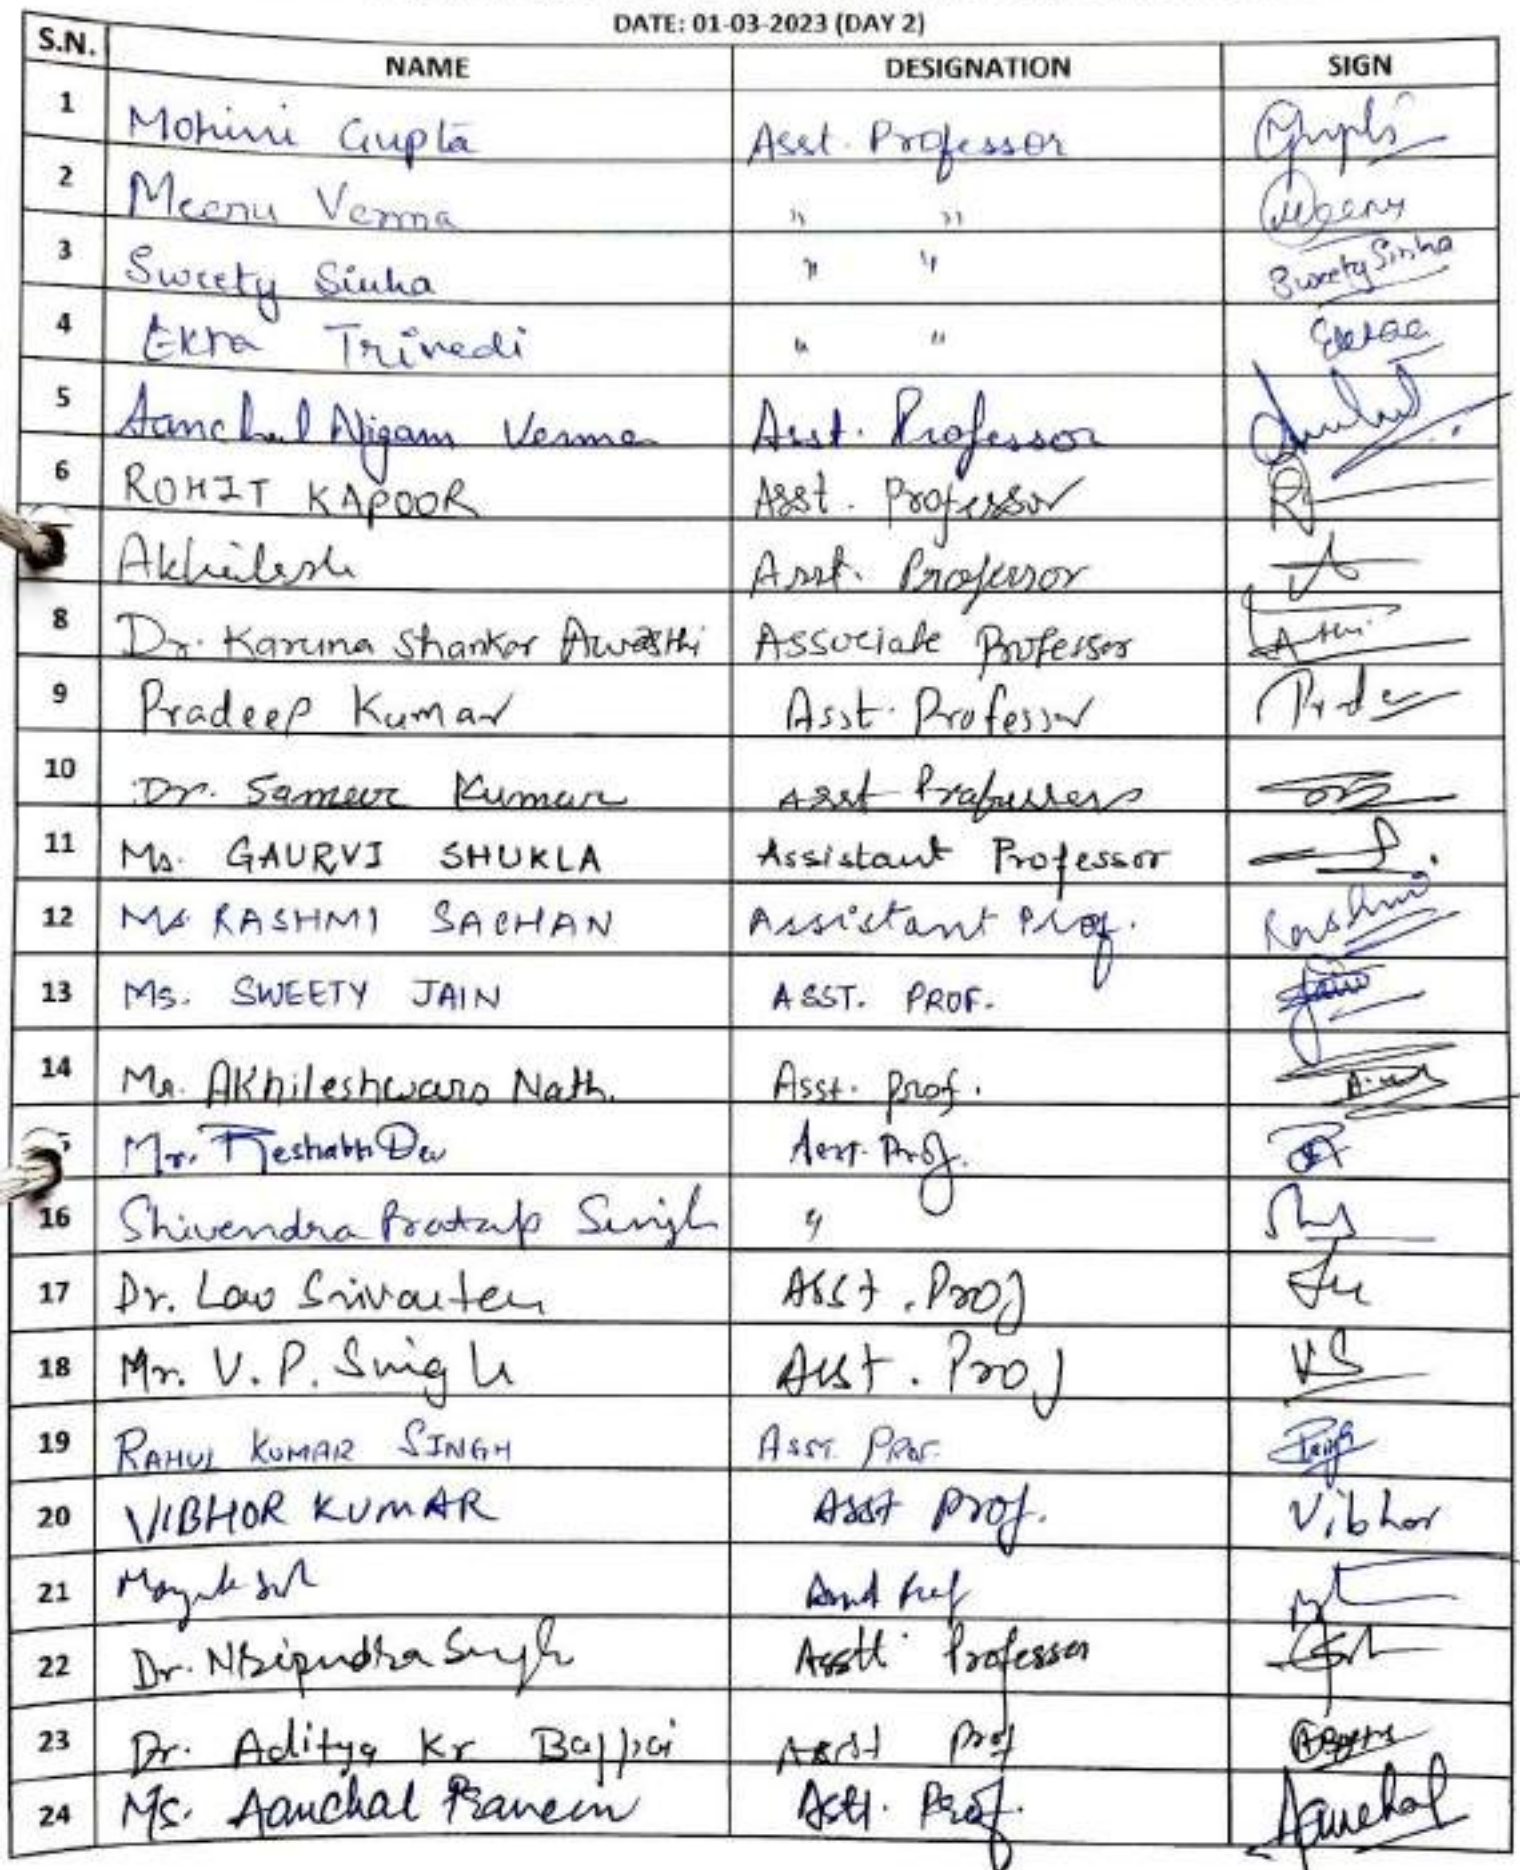 DATE: 01-03-2023 (DAY 2)
S.N. NAME DESIGNATION SIGN
1 Mohini Gupta Asst. Professor Gupta
2 Meenu Verma " " Meenu
3 Sweety Sinha " " Sweety Sinha
4 Ekta Trivedi " "
5 Aanchal Nigam Verma Asst. Professor
6 ROHIT KAPOOR Asst. Professor
Akhilesh Asst. Professor
8 Dr. Karuna Shankar Awasthi Associate Professor
9 Pradeep Kumar Asst. Professor
10 Dr. Sameer Kumar Asst Professor
11 Ms. GAURVI SHUKLA Assistant Professor
12 Ms RASHMI SACHAN Assistant Prof. Rashmi
13 Ms. SWEETY JAIN ASST. PROF. Jain
14 Mr. Akhileshwara Nath. Asst. Prof.
Mr. Dev Asst. Prof.
16 Shivendra Pratap Singh "
17 Dr. Lav Srivastava Asst. Prof
18 Mr. V. P. Singh Asst. Prof VS
19 RAHUL KUMAR SINGH ASST. PROF.
20 VIBHOR KUMAR Asst Prof. Vibhor
21
22 Dr. Singh Asstt Professor
23 Dr. Aditya Kr Bajpai Asstt Prof
24 Ms. Aanchal Praveen Astt. Prof. Aanchal